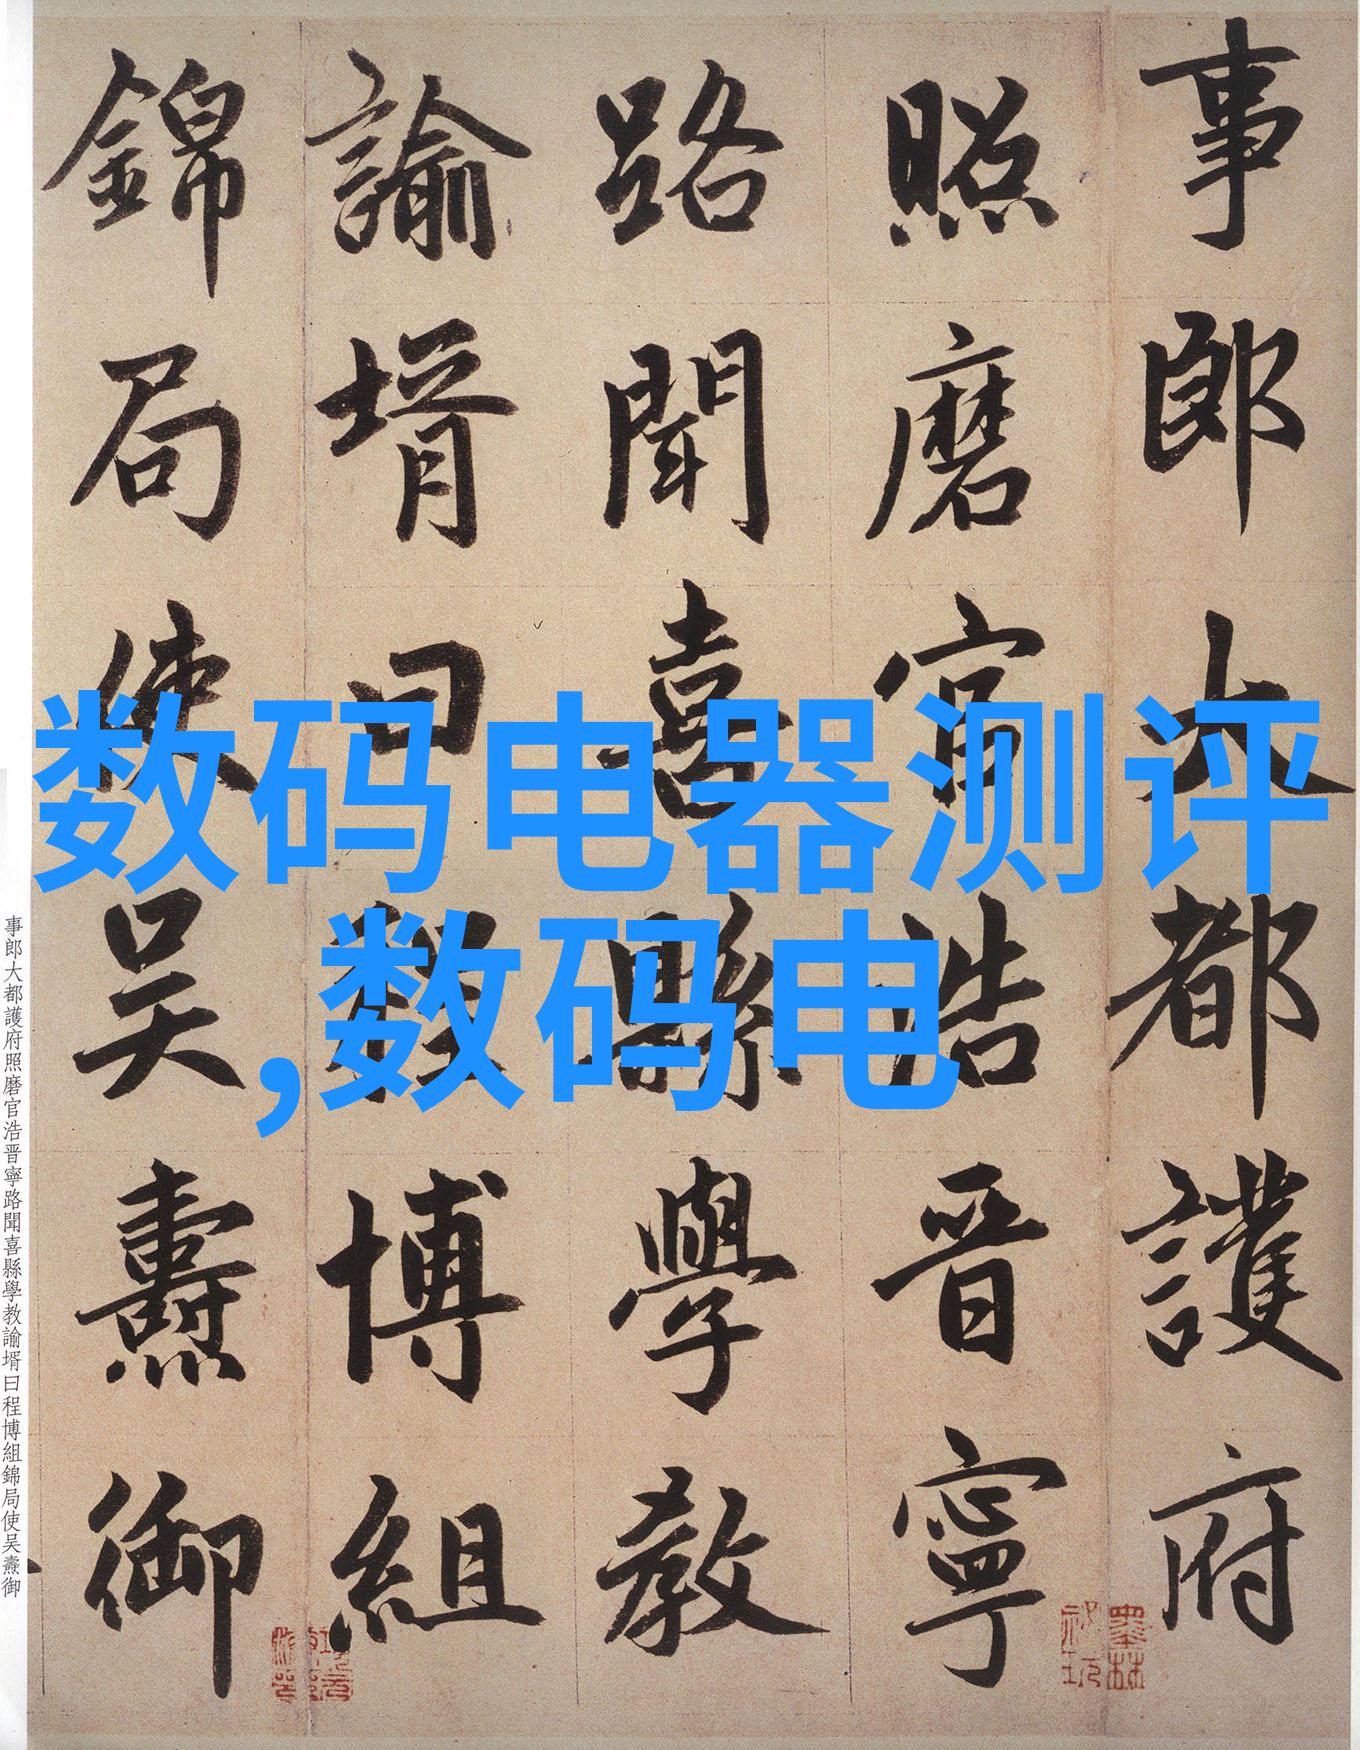 事郎大都護府
照磨官浩晋寧
路聞喜縣學教
諭壻曰程博組
錦局使吴燾御
数码电器测评
,数码电
事郎大都護府照磨官浩晋寧路聞喜縣學教諭壻曰程博組錦局使吴燾御